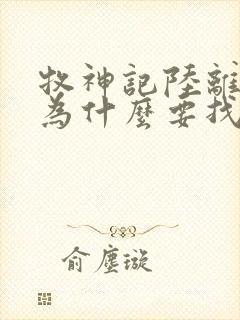 牧神記陸離
為什麼要找
俞塵璇